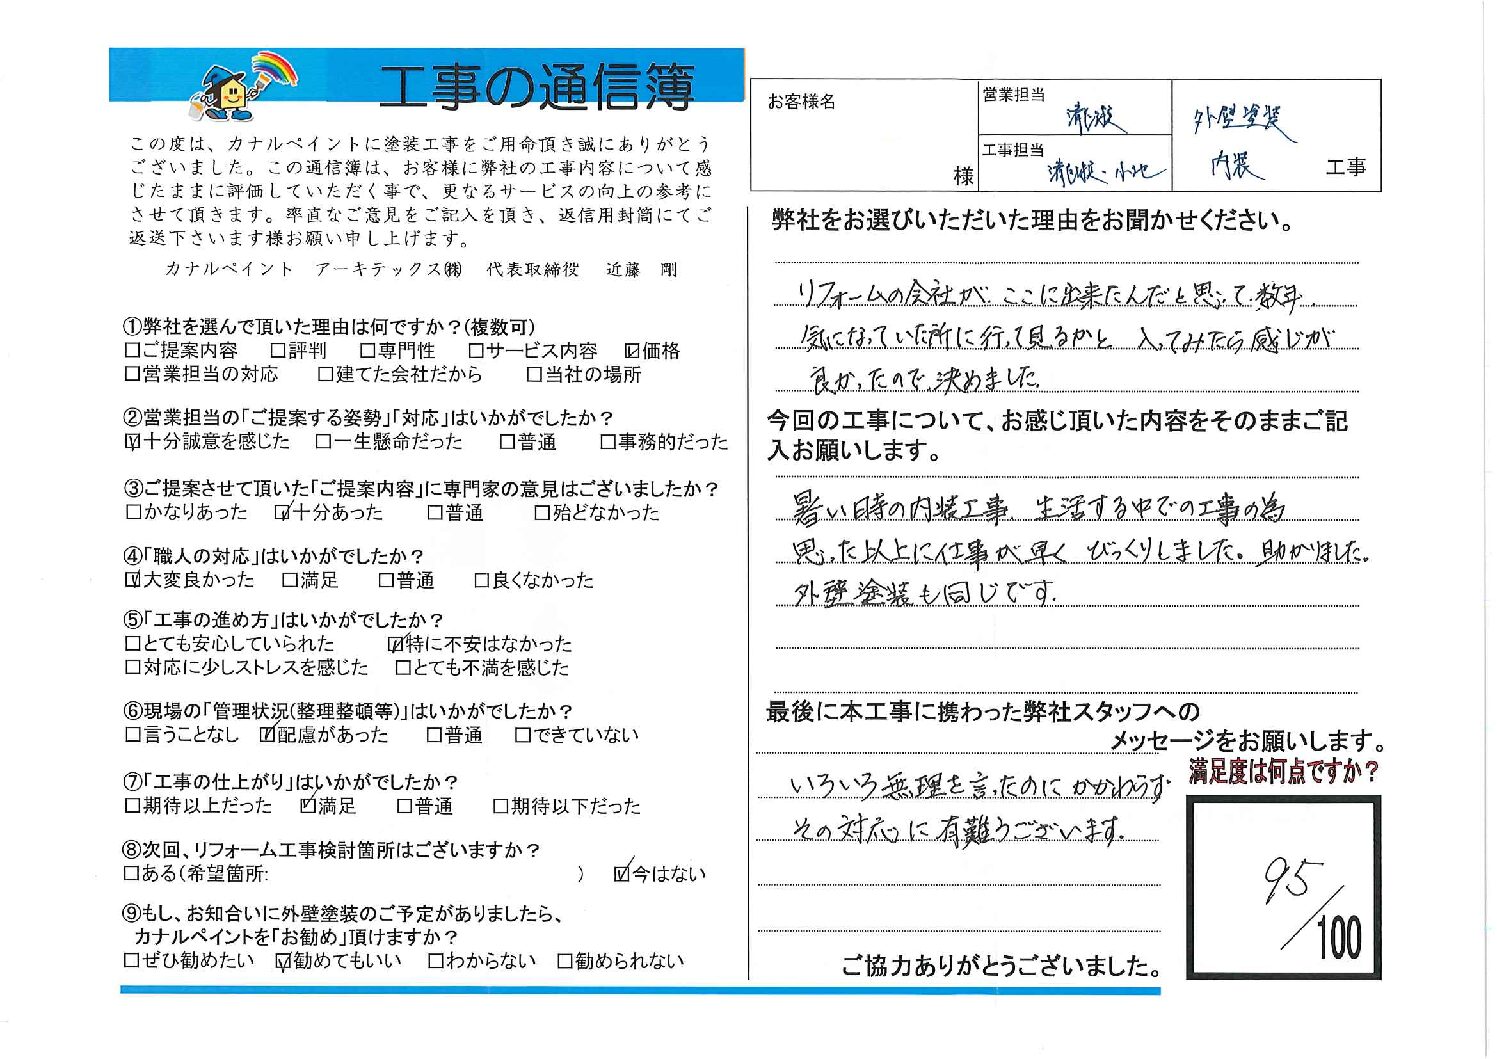 工事の通信簿
この度は、カナルペイントに塗装工事をご用命頂き誠にありがとう
ございました。この通信簿は、お客様に弊社の工事内容について感
じたままに評価していただく事で、更なるサービスの向上の参考に
させて頂きます。率直なご意見をご記入を頂き、返信用封筒にてご
返送下さいます様お願い申し上げます。
カナルペイント アーキテックス㈱ 代表取締役 近藤 剛
①弊社を選んで頂いた理由は何ですか?(複数可)
□ご提案内容 □評判 □専門性 □サービス内容 ☑価格
□営業担当の対応 □建てた会社だから □当社の場所
②営業担当の「ご提案する姿勢」「対応」はいかがでしたか?
☑十分誠意を感じた □一生懸命だった □普通 □事務的だった
③ご提案させて頂いた「ご提案内容」に専門家の意見はございましたか?
□かなりあった ☑十分あった □普通 □殆どなかった
④「職人の対応」はいかがでしたか?
☑大変良かった □満足 □普通 □良くなかった
⑤「工事の進め方」はいかがでしたか?
□とても安心していられた ☑特に不安はなかった
□対応に少しストレスを感じた □とても不満を感じた
⑥現場の「管理状況(整理整頓等)」はいかがでしたか?
□言うことなし ☑配慮があった □普通 □できていない
⑦「工事の仕上がり」はいかがでしたか?
□期待以上だった ☑満足 □普通 □期待以下だった
⑧次回、リフォーム工事検討箇所はございますか?
□ある(希望箇所: ) ☑今はない
⑨もし、お知合いに外壁塗装のご予定がありましたら、
カナルペイントを「お勧め」頂けますか?
□ぜひ勧めたい ☑勧めてもいい □わからない □勧められない
お客様名
様
営業担当
工事担当
小池
外壁塗装
内装
工事
弊社をお選びいただいた理由をお聞かせください。
リフォームの会社が、ここに出来たんだと思って数年、
気になっていた所に行って見るかと 入ってみたら感じが
良かったので決めました。
今回の工事について、お感じ頂いた内容をそのままご記
入お願いします。
暑い時の内装工事、生活する中での工事の為
思った以上に仕事が早く びっくりしました。助かりました。
外壁塗装も同じです。
最後に本工事に携わった弊社スタッフへの
メッセージをお願いします。
いろいろ無理を言ったのにかかわらず
その対応に有難うございます。
満足度は何点ですか?
95/100
ご協力ありがとうございました。